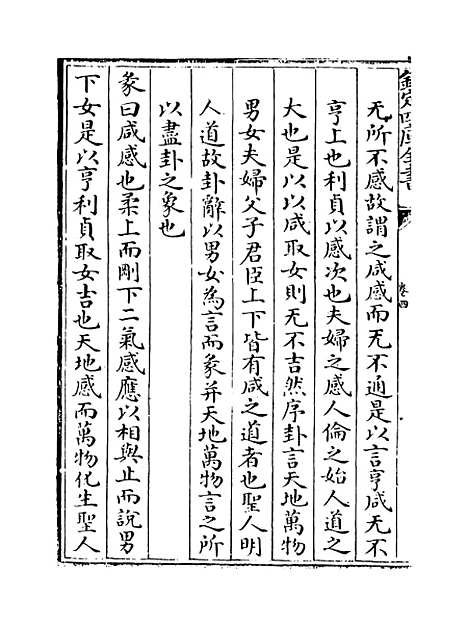 欽定四庫全書
卷四
无所不感故謂之咸感而无不通是以言亨咸无不
亨上也利貞以感次也夫婦之感人倫之始人道之
大也是以以咸取女則无不吉然序卦言天地萬物
男女夫婦父子君臣上下皆有咸之道者也聖人明
人道故卦辭以男女為言而彖并天地萬物言之所
以盡卦之象也
彖曰咸感也柔上而剛下二氣感應以相與止而說男
下女是以亨利貞取女吉也天地感而萬物化生聖人